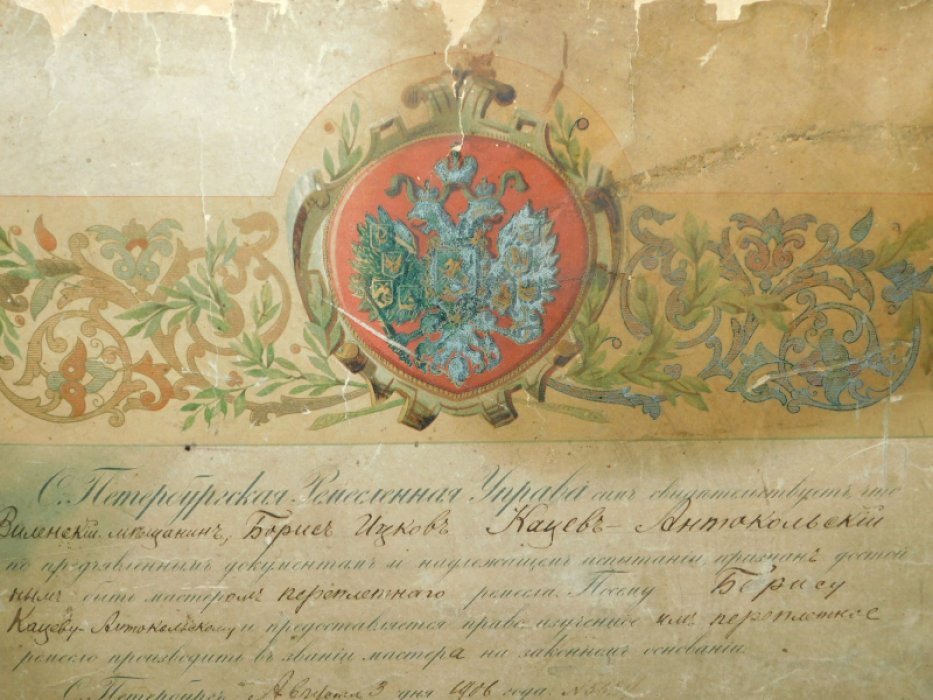 С. Петербургская Ремесленная Управа симъ свидѣтельствуетъ, что
Виленскій мѣщанинъ, Борисъ Ицковъ Кацевъ-Антокольскій
по предъявленнымъ документамъ и надлежащемъ испытаніи, признанъ достой
нымъ быть мастеромъ переплетнаго ремесла. Посему Борису
Кацеву-Антокольскому и предоставляется право изученное имъ переплетное
ремесло производить въ званіи мастера на законномъ основаніи.
С. Петербургъ, Августа 3 дня 1906 года. №